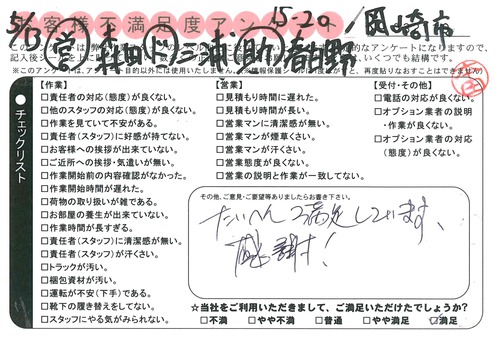 お客様不満足度アンケート
15-20
岡崎市
5/13 営 森田
三浦
春日野
【作業】
□責任者の対応(態度)が良くない。
□他のスタッフの対応(態度)が良くない。
□作業を見ていて不安がある。
□責任者(スタッフ)に好感が持てない。
□お客様への挨拶が出来ていない。
□ご近所への挨拶・気遣いが無い。
□作業開始前の内容確認がなかった。
□作業開始時間が遅れた。
□荷物の取り扱いが雑である。
□お部屋の養生が出来ていない。
□作業時間が長すぎる。
□責任者(スタッフ)に清潔感が無い。
□責任者(スタッフ)が汗くさい。
□トラックが汚い。
□梱包資材が汚い。
□運転が不安(下手)である。
□靴下の履き替えをしてない。
□スタッフにやる気がみられない。
【営業】
□見積もり時間に遅れた。
□見積もり時間が長い。
□営業マンに清潔感が無い。
□営業マンが煙草くさい。
□営業マンが汗くさい。
□営業態度が良くない。
□営業の説明と作業が一致してない。
【受付・その他】
□電話の対応が良くない。
□オプション業者の説明
・作業が良くない。
□オプション業者の対応
(態度)が良くない。
チェックリスト
その他、ご意見・ご要望等ありましたらお書き下さい。
たいへん満足しています、
感謝!
☆当社をご利用いただきまして、ご満足いただけたでしょうか?
□不満 □やや不満 □普通 □やや満足 ☑満足